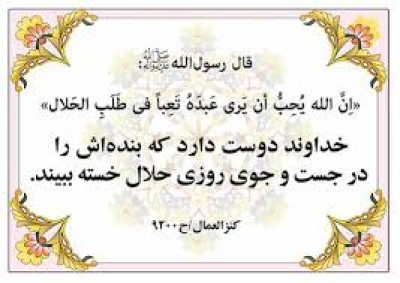 قال رسول‌الله ﷺ:
«اِنَّ الله یُحِبُّ أن یَری عَبدَهُ تَعِباً فی طَلَبِ الحَلال»
خداوند دوست دارد که بنده‌اش را
در جست و جوی روزی حلال خسته ببیند.
کنزالعمال/ح۹۲۰۰